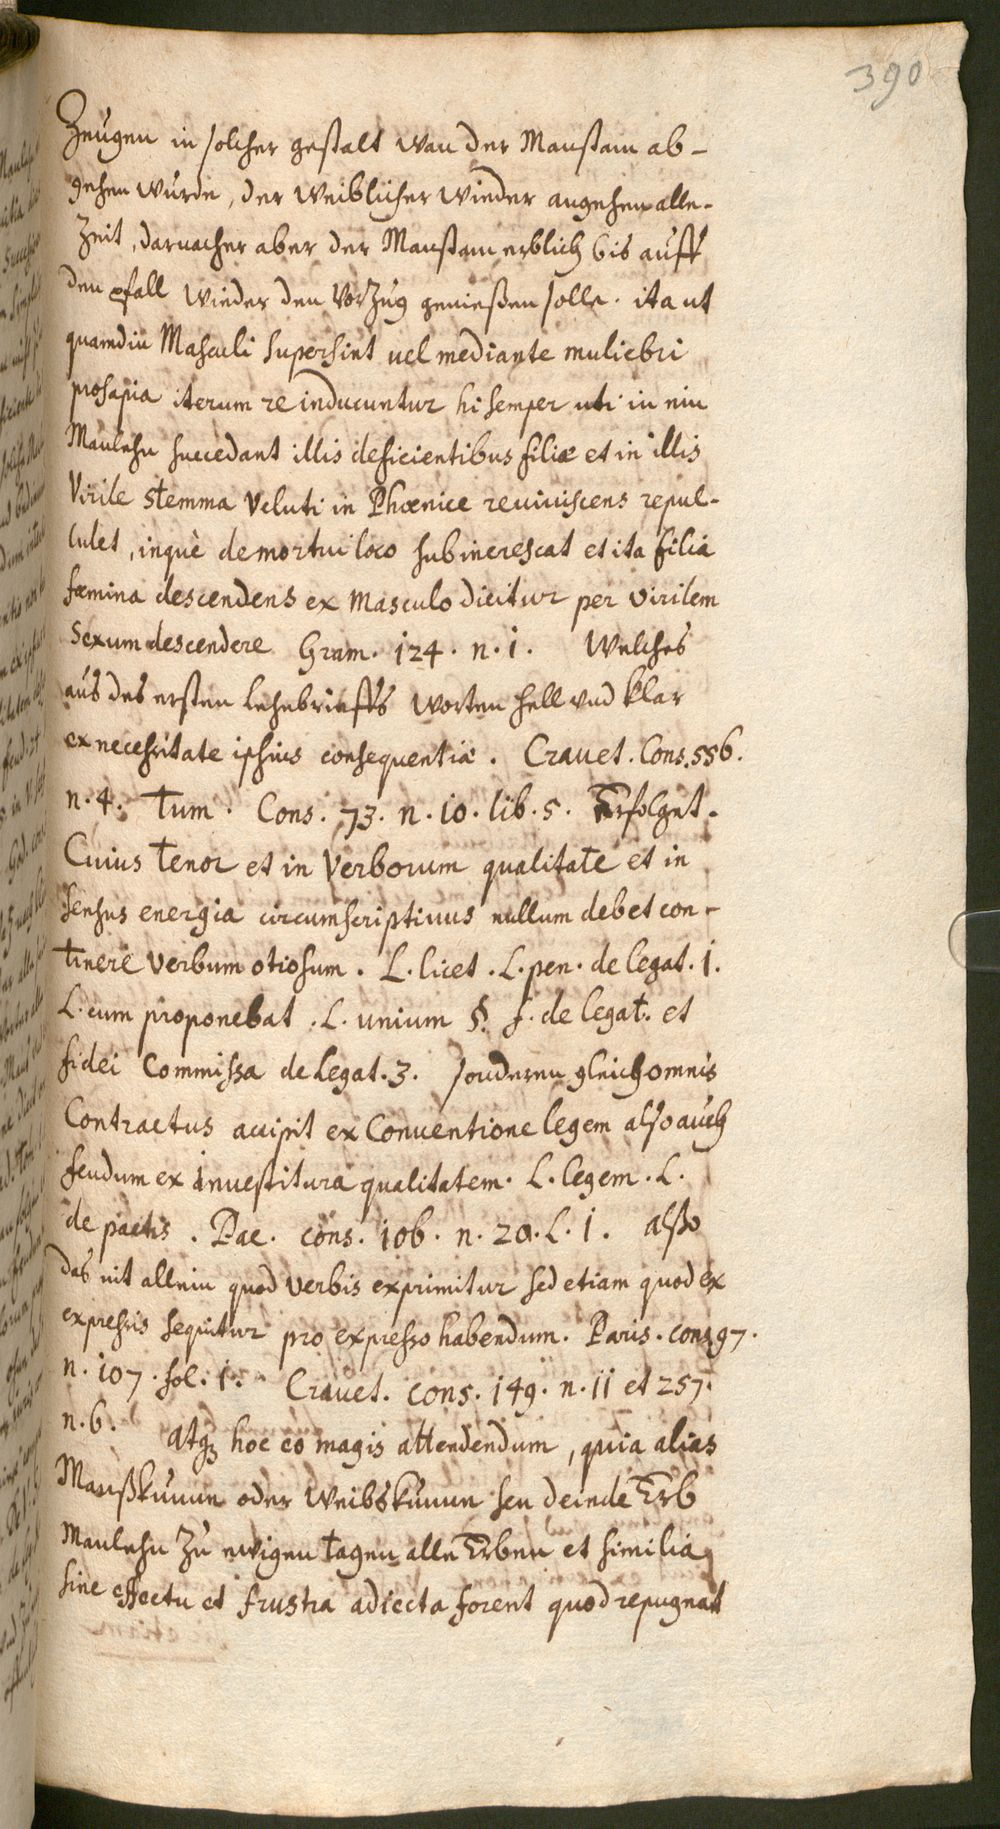 390
Zeugen in solcher gestalt wan der Manstam ab-
gehen würde, der Weiblicher wieder angehen alle-
Zeit, darnacher aber der Manstam erblich bis auff
den pfall wieder den VorZug genießen solle. ita ut
quamdiu Masculi supersint vel mediante muliebri
prosapia iterum reinducuntur hi semper uti in ein
Manlehn succedant illis deficientibus filiæ et in illis
Virile stemma Veluti in Phœnice reuiuiscens repul-
lulet, inquè demortui loco subincrescat et ita filia
fæmina descendens ex Masculo dicitur per virilem
Sexum descendere Gram. 124. n. 1. Welches
aus des ersten Lehnbrieffs worten hell vnd klar
ex necessitate ipsius consequentiæ. Crauet. Cons. 556.
n. 4. Tum. Cons. 73. n. 10. lib. 5. Erfolget.
Cuius tenor et in Verborum qualitate et in
sensus energia circumscriptiuus nullum debet con-
tinere Verbum otiosum. L. licet. L. pen. de legat. 1.
L. cum proponebat. L. unium §. f. de legat. et
fidei Commissa de Legat. 3. sonderen gleich omnis
Contractus accipit ex Conuentione legem also auch
feudum ex inuestitura qualitatem. L. legem. L.
de pactis. Pac. cons. 106. n. 20. L. 1. alßo
das nit allein quod verbis exprimitur sed etiam quod ex
expressis sequitur pro expresso habendum. Paris. cons 97.
n. 107. fol. 1. Crauet. cons. 149. n. 11 et 257.
n. 6. atq3 hoc eo magis attendendum, quia alias
Manßkunne oder Weibskunne seu deinde Erb
Manlehn Zu ewigen tagen alle Erben et similia
sine effectu et frustra adiecta forent quod repugnat